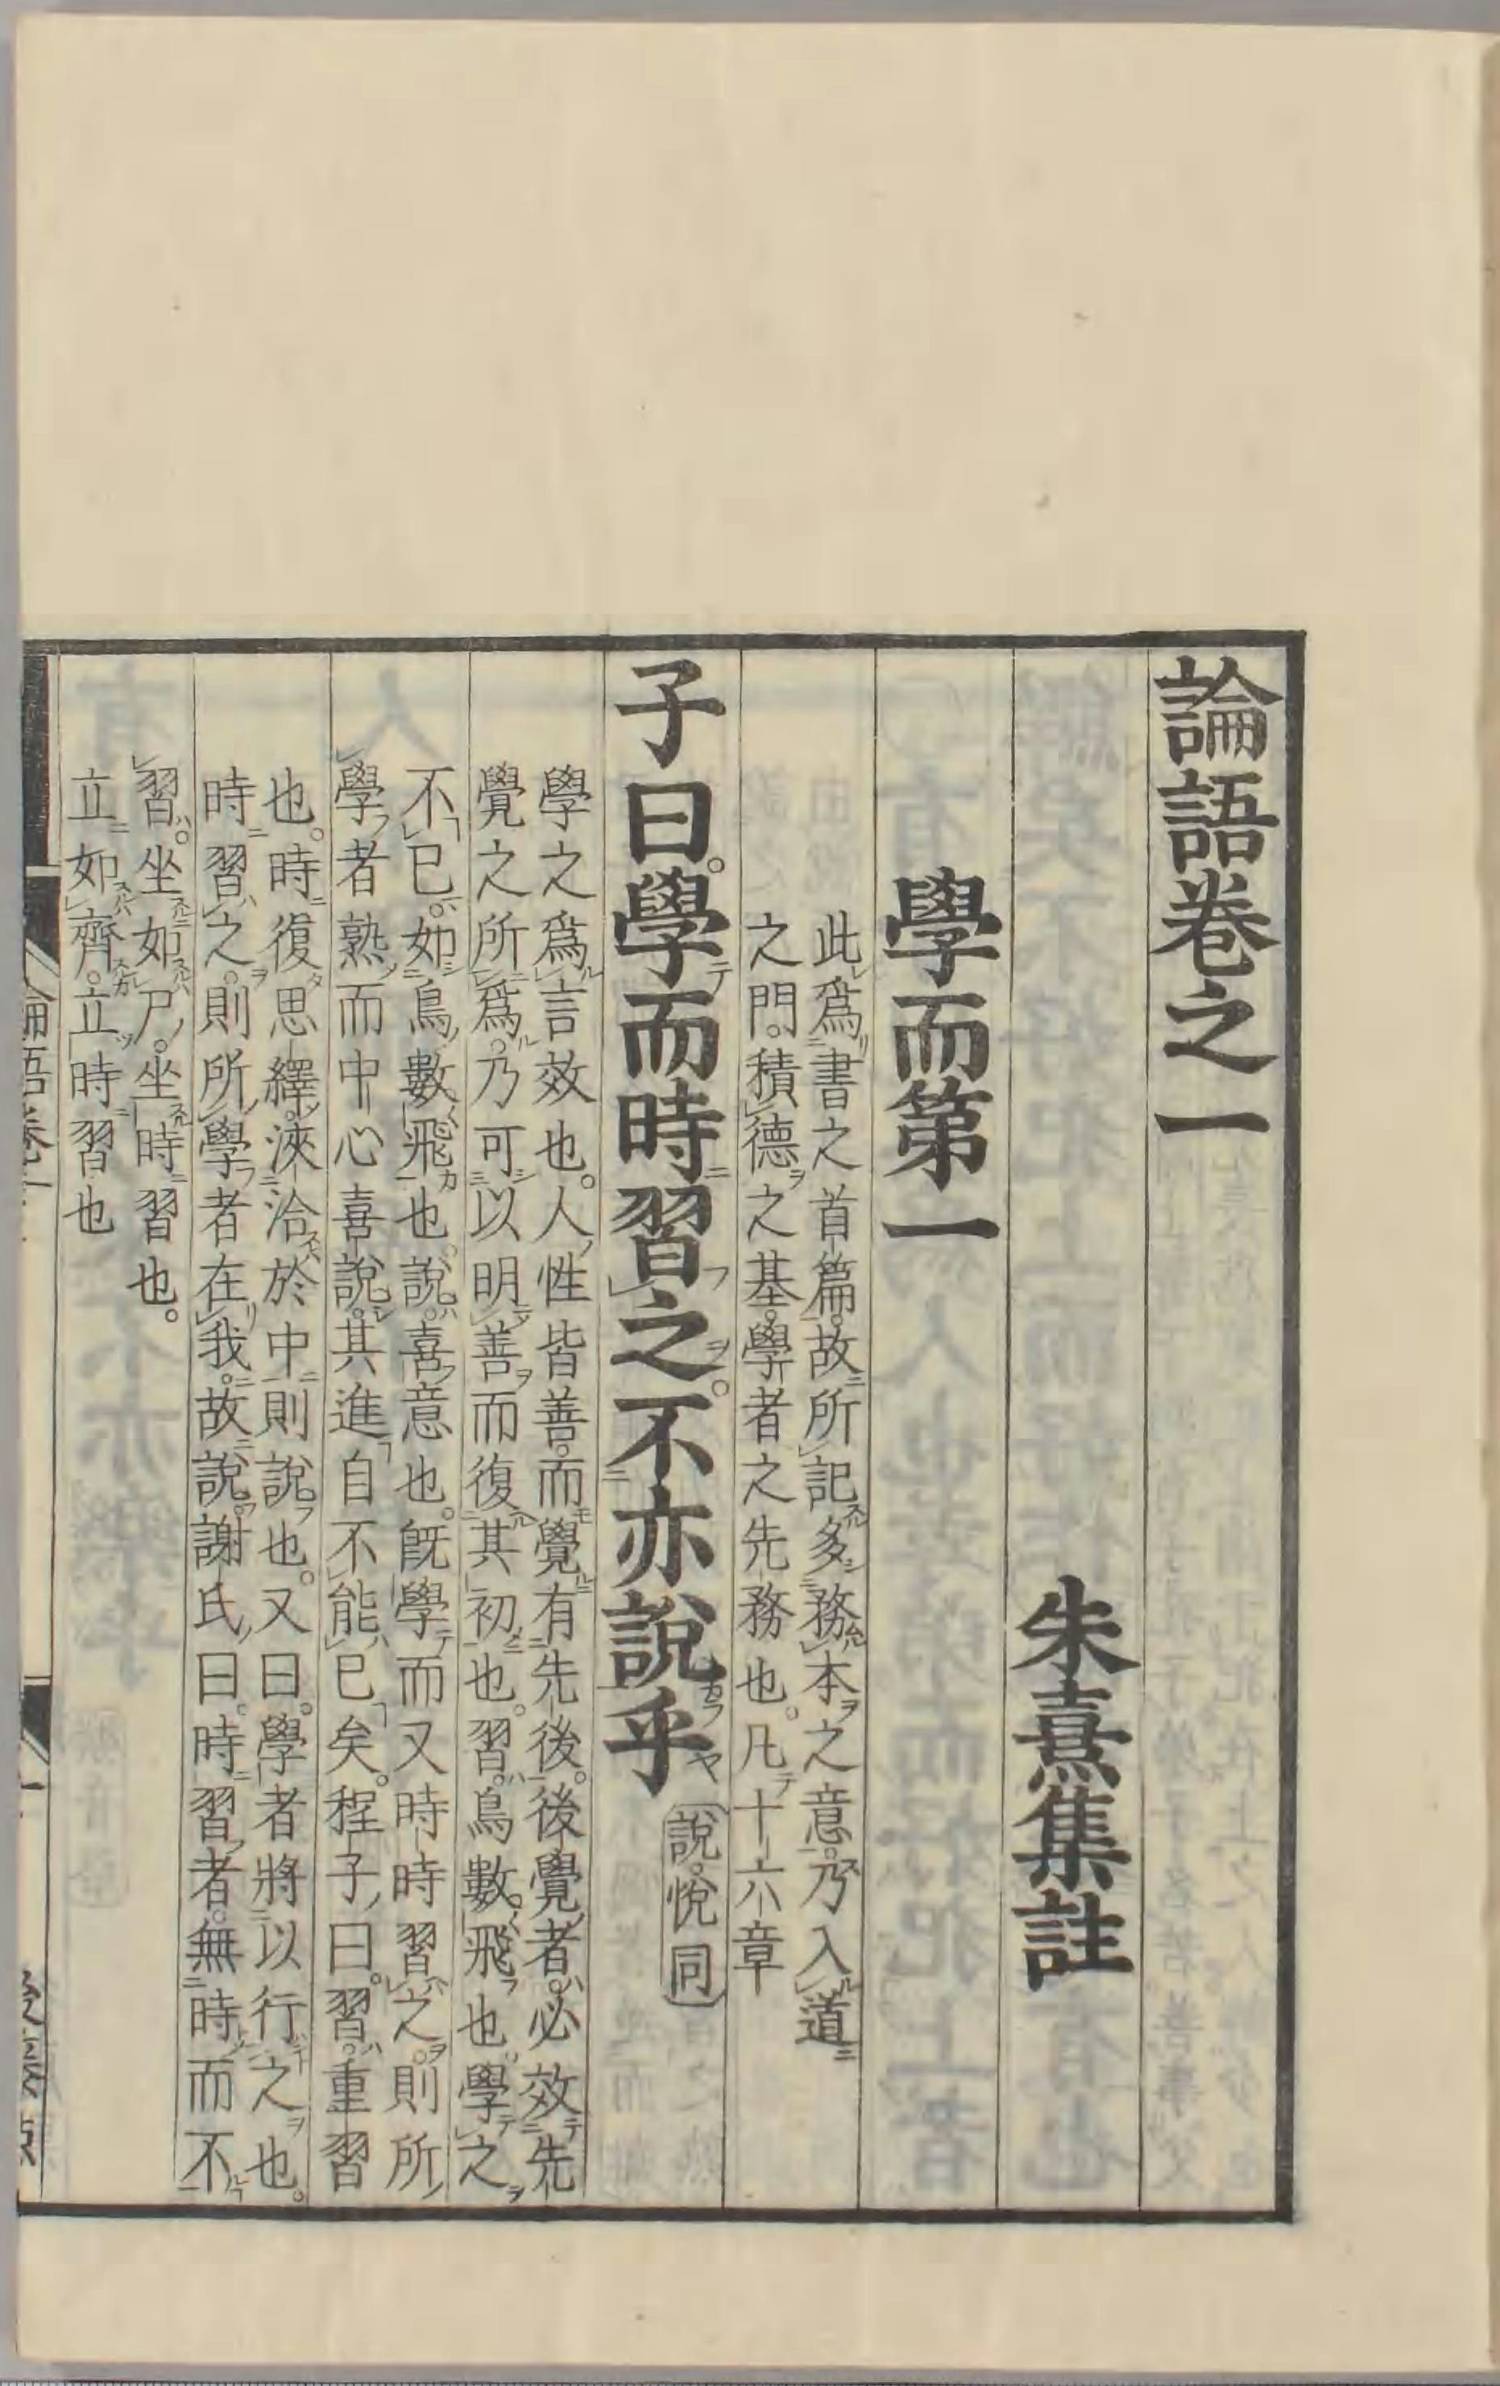 論語卷之一
朱熹集註
學而第一
此爲書之首篇故所記多務本之意乃入道
之門積德之基學者之先務也凡十六章
子曰學而時習之不亦說乎
說悅同
學之爲言效也人性皆善而覺有先後後覺者必效先
覺之所爲乃可以明善而復其初也習鳥數飛也學之
不已如鳥數飛也說喜意也旣學而又時時習之則所
學者熟而中心喜說其進自不能已矣程子曰習重習
也時復思繹浹洽於中則說也又曰學者將以行之也
時習之則所學者在我故說謝氏曰時習者無時而不
習坐如尸坐時習也
立如齊立時習也